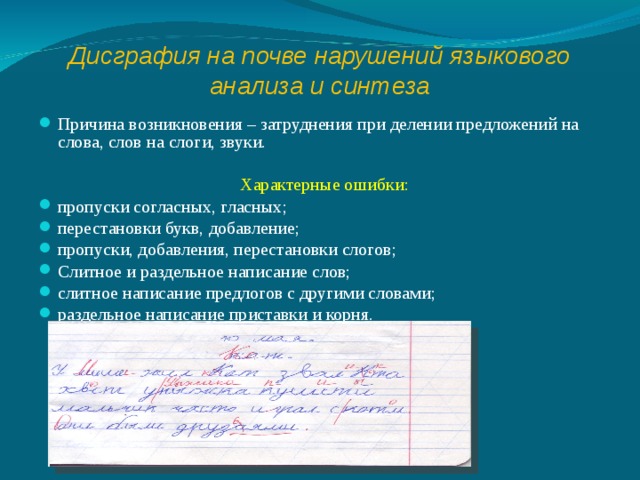 Дисграфия на почве нарушений языкового
анализа и синтеза
Причина возникновения – затруднения при делении предложений на
слова, слов на слоги, звуки.
Характерные ошибки:
пропуски согласных, гласных;
перестановки букв, добавление;
пропуски, добавления, перестановки слогов;
Слитное и раздельное написание слов;
слитное написание предлогов с другими словами;
раздельное написание приставки и корня.
мая.
Кот.
У жил Кот звали
хвет пушисти
мальчик часто играл
были друзаями.